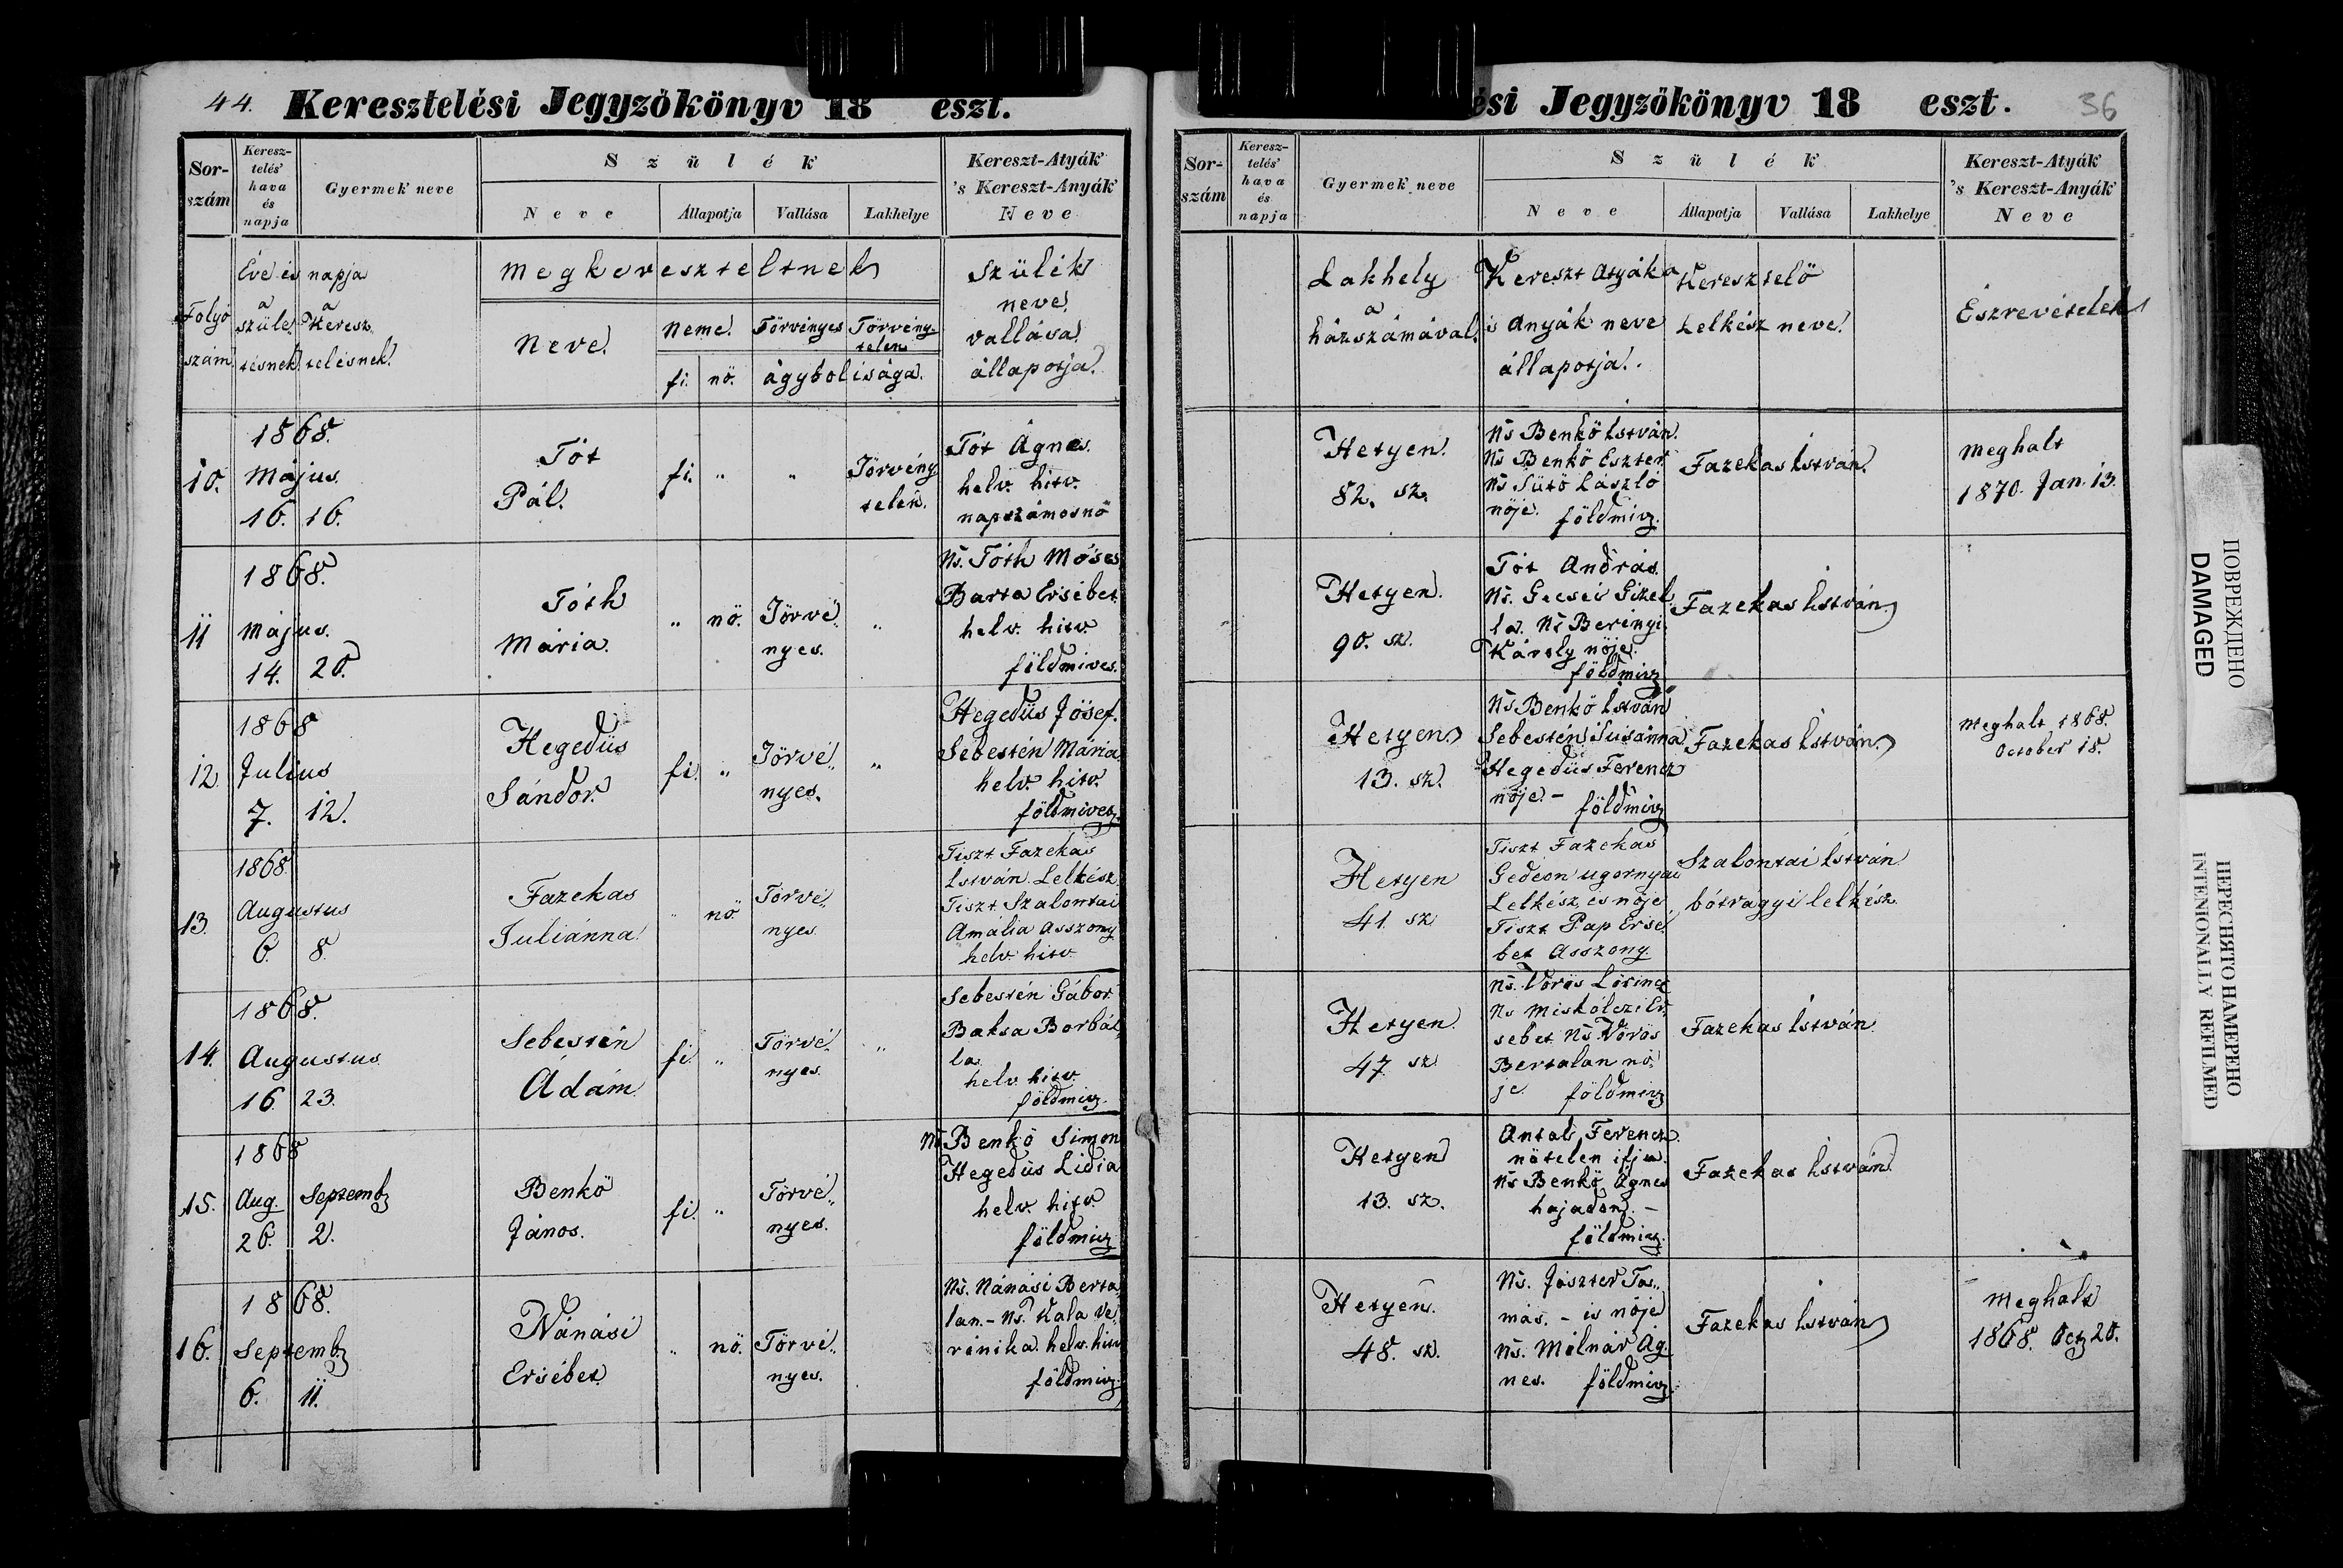 44. Keresztelési Jegyzőkönyv 18 eszt.
Sor-
szám
Keresz-
telés'
hava
és
napja
Gyermek neve
Szülék
Neve
Állapotja
Vallása
Lakhelye
Kereszt-Atyák
's Kereszt-Anyák
Neve
Folyó
szám
Éve és napja
a
szüle
tésnek
a
Keresz
telésnek.
Megkereszteltnek
Neve.
Neme.
fi. nő.
Törvényes
Törvény-
telen
ágyboli sága.
Szülék
neve
vallása
állapotja.
10.
1868.
Május.
16. 16.
Tót
Pál.
fi. " "
Törvény
telen.
Tót Ágnes.
helv. hitv.
napszámosnő
11
1868.
Május.
14. 20.
Tóth
Mária.
" nő. Törvé
nyes. "
Ns. Tóth Móses
Barta Ersébet
helv. hitv.
földmives.
12.
1868
Julius
7. 12.
Hegedüs
Sándor.
fi. " Törvé
nyes. "
Hegedüs Jósef.
Sebestén Mária
helv. hitv.
földmives
13.
1868
Augustus
6. 8.
Fazekas
Juliánna.
" nő Törvé
nyes.
Tiszt. Fazekas
István Lelkész
Tiszt Szalontai
Amália Asszony
helv. hitv.
14.
1868.
Augustus
16. 23.
Sebestén
Ádám
fi. " Törvé
nyes. "
Sebestén Gábor
Baksa Borbál
la
helv. hitv.
földmivz.
15.
1868
Aug. Septemb
26. 2.
Benkő
János.
fi. " Törvé
nyes.
Ns Benkő Simon
Hegedüs Lidia
helv. hitv.
földmivz
16.
1868.
Septemb
6. 11.
Nánási
Ersébet
" nő. Törvé
nyes.
Ns. Nánási Berta
lan. - Ns. Kala Ve
rónika. helv. hitv
földmivz
ési Jegyzőkönyv 18 eszt. 36
Sor-
szám
Keresz-
telés'
hava
és
napja
Gyermek neve
Szülék
Neve
Állapotja
Vallása
Lakhelye
Kereszt-Atyák
's Kereszt-Anyák
Neve
Lakhely
a
házszámával.
Kereszt Atyák
és Anyák neve
állapotja.
Keresztelő
Lelkész neve.
Észrevételek
Hetyen.
82. sz.
Ns Benkő István.
Ns Benkő Eszter
Ns Sütő László
nője. földmivz.
Fazekas István.
Meghalt
1870. Jan. 13.
Hetyen.
90. sz.
Tót András.
Ns. Gecsei Gizel
la. Ns Berényi
Károly nője.
földmivz
Fazekas István
Hetyen
13. sz.
Ns Benkő István
Sebestén Susánna
Hegedüs Ferencz
nője. - földmivz
Fazekas István.
Meghalt 1868.
October 18.
Hetyen
41. sz
Tiszt Fazekas
Gedeon ugornyai
Lelkész és nője
Tiszt Pap Ersé
bet Asszony.
Szalontai István
bótrágyi lelkész
Hetyen.
47 sz
Ns. Vörös Lőrincz
Ns Miskólczi Er
sebet Ns Vörös
Bertalan nő
je földmivz
Fazekas István.
Hetyen
13. sz.
Antal Ferencz
nőtelen ifju.
Ns Benkő Ágnes
hajadon. -
földmivz.
Fazekas István.
Hetyen.
48. sz.
Ns. Jászter Ta
más. - és nője
Ns. Molnár Ág
nes. földmivz.
Fazekas István
Meghalt
1868. Oct 20.
ПОВРЕЖДЕНО
DAMAGED
ПЕРЕСНЯТО НАМЕРЕНО
INTENIONALLY REFILMED